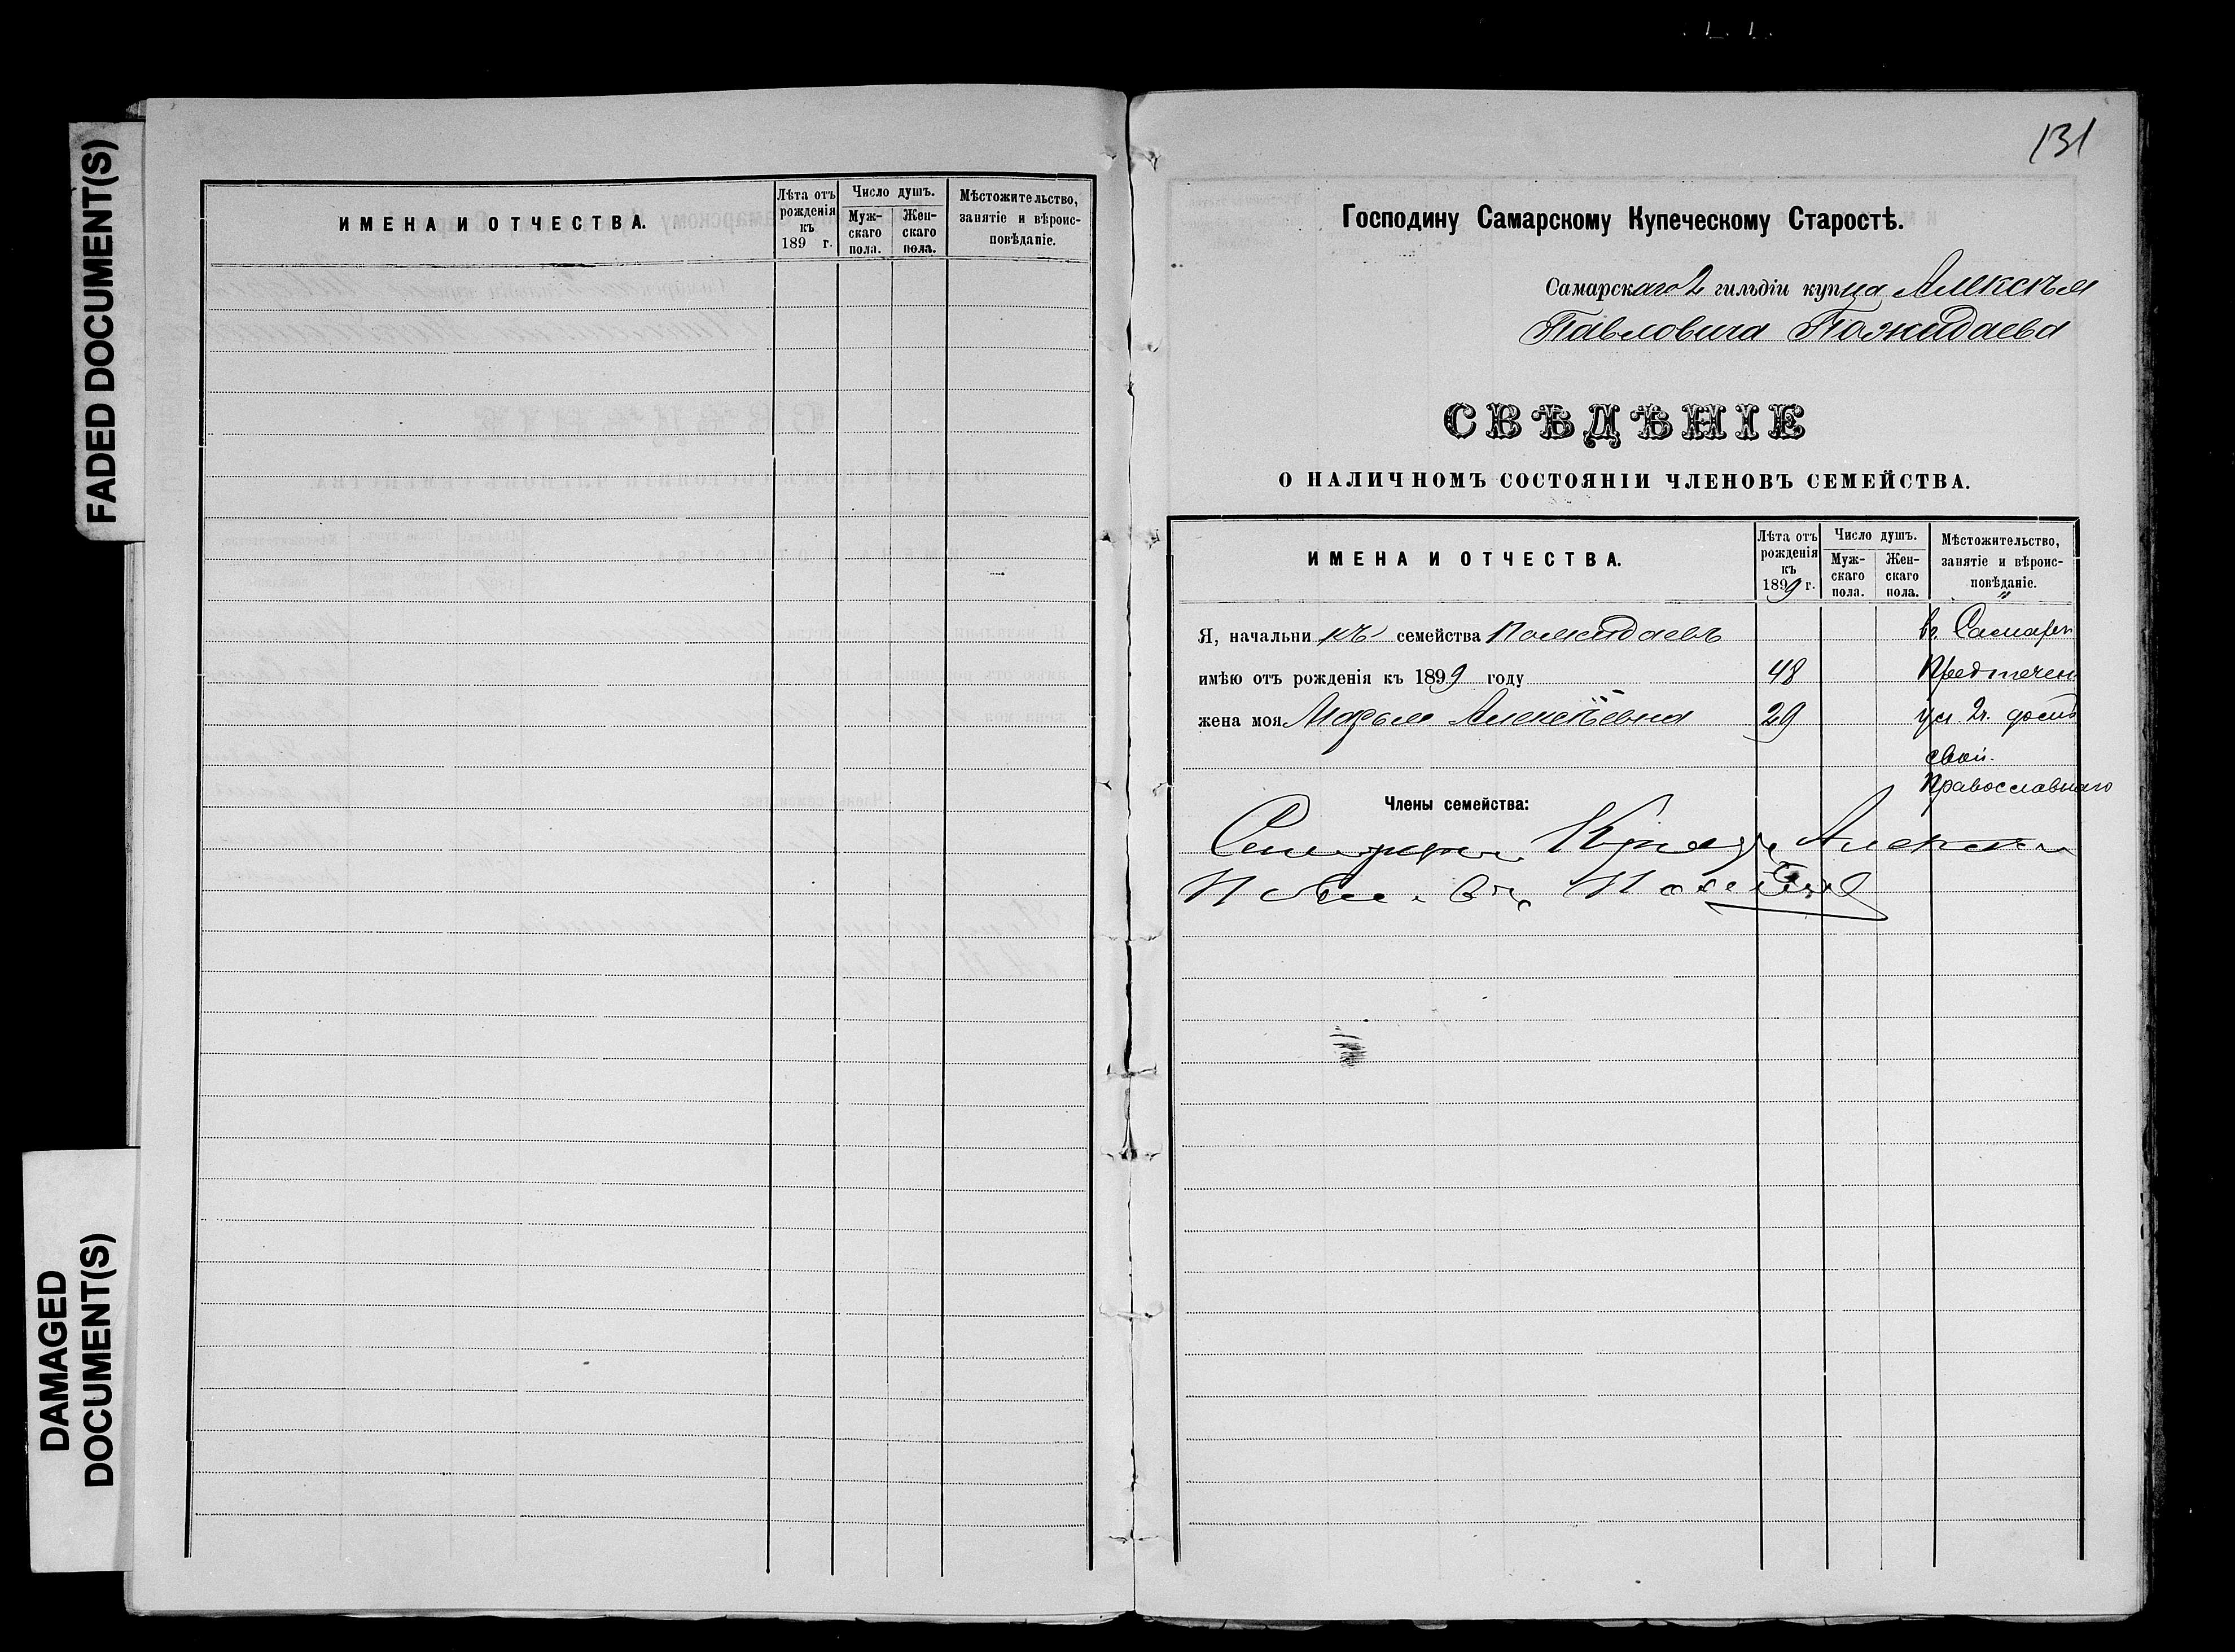 FADED DOCUMENT(S)
DAMAGED
DOCUMENT(S)
ИМЕНА И ОТЧЕСТВА.
Лѣта отъ рожденія къ 189 г.
Число душъ.
Мужскаго пола.
Женскаго пола.
Мѣстожительство, занятіе и вѣроисповѣданіе.
131
Господину Самарскому Купеческому Старостѣ.
Самарскаго 2 гильдіи купца Алексѣя
Павловича Пожидаева
СВѢДѢНІЕ
О НАЛИЧНОМЪ СОСТОЯНІИ ЧЛЕНОВЪ СЕМЕЙСТВА.
ИМЕНА И ОТЧЕСТВА.
Лѣта отъ рожденія къ 1899 г.
Число душъ.
Мужскаго пола.
Женскаго пола.
Мѣстожительство, занятіе и вѣроисповѣданіе.
Я, начальникъ семейства Пожидаевъ
имѣю отъ рожденія къ 1899 году 48
жена моя Марья Алексѣевна 29
въ Самарѣ
Предтечен
ул 2ч. домъ
свой.
Православнаго
Члены семейства:
Купецъ Алексей